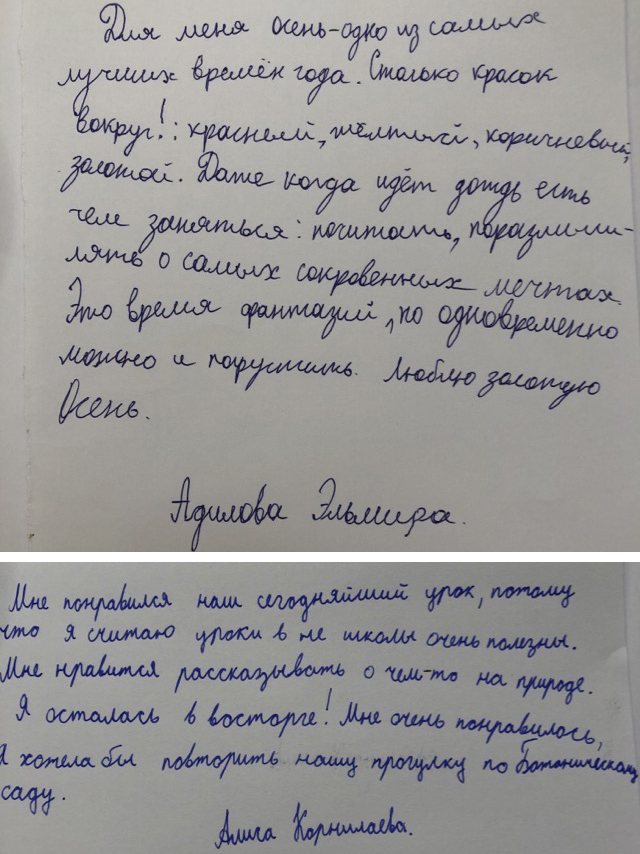 Для меня осень-одно из самых
лучших времён года. Столько красок
вокруг!: красный, жёлтый, коричневый,
золотой. Даже когда идёт дождь есть
чем заняться: почитать, поразмыш-
лять о самых сокровенных мечтах.
Это время фантазий, но одновременно
можно и погрустить. Люблю золотую
Осень.
Адилова Эльмира.
Мне понравился наш сегодняйший урок, потому
что я считаю уроки в не школы очень полезны.
Мне нравится рассказывать о чем-то на природе.
Я осталась в восторге! Мне очень понравилось,
Я хотела бы повторить нашу прогулку по Ботаническому
саду.
Алиса Корнилаева.